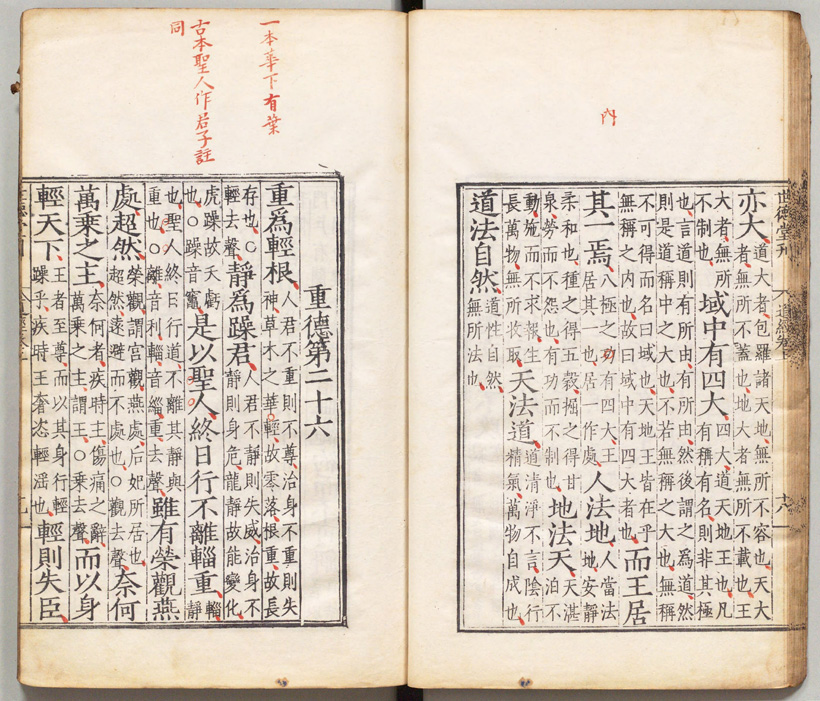 內
世德堂刊
道經卷上
亦大道大者包羅諸天地無所不容也天大者無所不蓋也地大者無所不載也王
大者無所不制也域中有四大四大道天地王也凡有稱有名則非其極
也言道則有所由有所由然後謂之為道然則是道稱中之大也不若無稱之大也無稱
不可得而名曰域也天地王皆在乎無稱之內也故曰域中有四大者也而王居
其一焉八極之功有四大王居其一也居一作處人法地人當法地安靜
柔和也種之得五穀掘之得甘泉勞而不怨也有功而不制也地法天天湛泊不
動施而不求報生長萬物無所收取天法道道清淨不言陰行精氣萬物自成也
道法自然道性自然無所法也
一本華下有葉
古本聖人作君子註
同
重德第二十六
重為輕根人君不重則不尊治身不重則失神草木之華輕故零落根重故長
存也○輕去聲靜為躁君人君不靜則失威治身不靜則身危龍靜故能變化
虎躁故夭虧也○躁音竈是以聖人終日行不離輜重輜靜
也聖人終日行道不離其靜與重也○離音利輜音緇重去聲雖有榮觀燕
處超然榮觀謂宮觀燕處后妃所居也超然遠避而不處也○觀去聲奈何
萬乘之主奈何者疾時主傷痛之辭萬乘之主謂王○乘去聲而以身
輕天下王者至尊而以其身行輕躁乎疾時王奢恣輕淫也輕則失臣